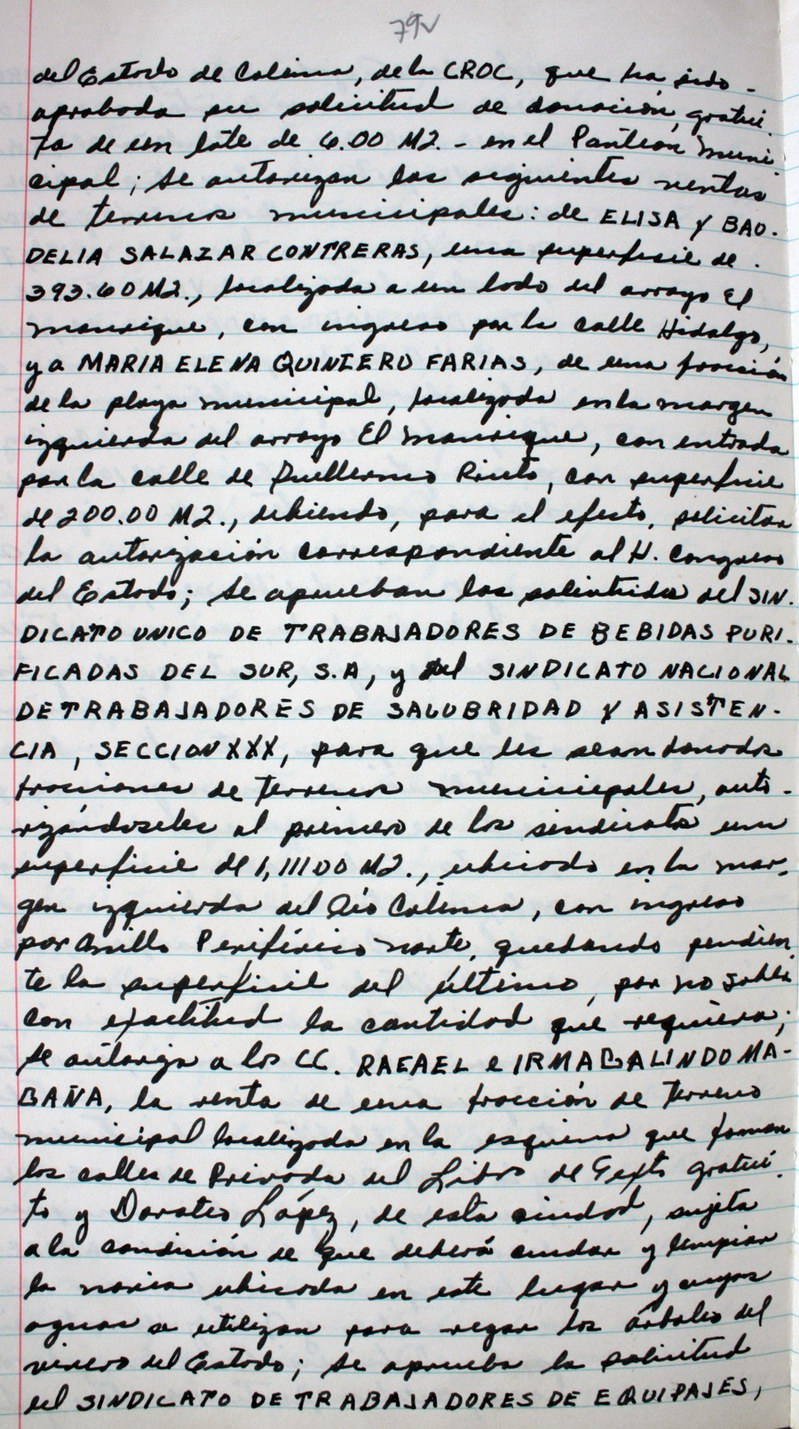 79v
del Estado de Colima, de la CROC, que ha sido -
aprobada su solicitud de donación, gratui-
ta de un lote de 6.00 M2. - en el Panteon Muni-
cipal; se autorizan las siguientes ventas
de terrenos municipales: de ELISA Y BAU-
DELIA SALAZAR CONTRERAS, una superficie de -
393.60 M2., localizada a un lado del arroyo El
Manrique, con ingreso por la calle Hidalgo,
y a MARIA ELENA QUINTERO FARIAS, de una fracción
de la playa municipal, localizada en la margen
izquierda del arroyo El Manrique, con entrada
por la calle de Guillermo Prieto, con superficie
de 200.00 M2., debiendo, para el efecto, solicitar
la autorización correspondiente al H. Congreso
del Estado; se aprueban las solicitudes del SIN-
DICATO UNICO DE TRABAJADORES DE BEBIDAS PURI-
FICADAS DEL SUR, S.A, y del SINDICATO NACIONAL
DE TRABAJADORES DE SALUBRIDAD Y ASISTEN-
CIA, SECCION XXX, para que les sean donados
fracciones de terrenos municipales, auto-
rizándoseles al primero de los sindicatos una
superficie de 1,111.00 M2., ubicado en la mar-
gen izquierda del Río Colima, con ingreso
por Anillo Periférico norte, quedando pendien-
te la superficie del último, por no saber
con exactitud la cantidad que requiera;
se autoriza a los CC. RAFAEL e IRMA GALINDO MA-
GAÑA, la renta de una fracción de terreno
municipal localizada en la esquina que forman
las calles de Privada del Libro de Texto gratui-
to y Doroteo López, de esta ciudad, sujeta
a la condición de que deberá cuidar y limpiar
la noria ubicada en este lugar y cuyas
aguas se utilizan para regar los árboles del
vivero del Estado; se aprueba la solicitud
del SINDICATO DE TRABAJADORES DE EQUIPAJES,